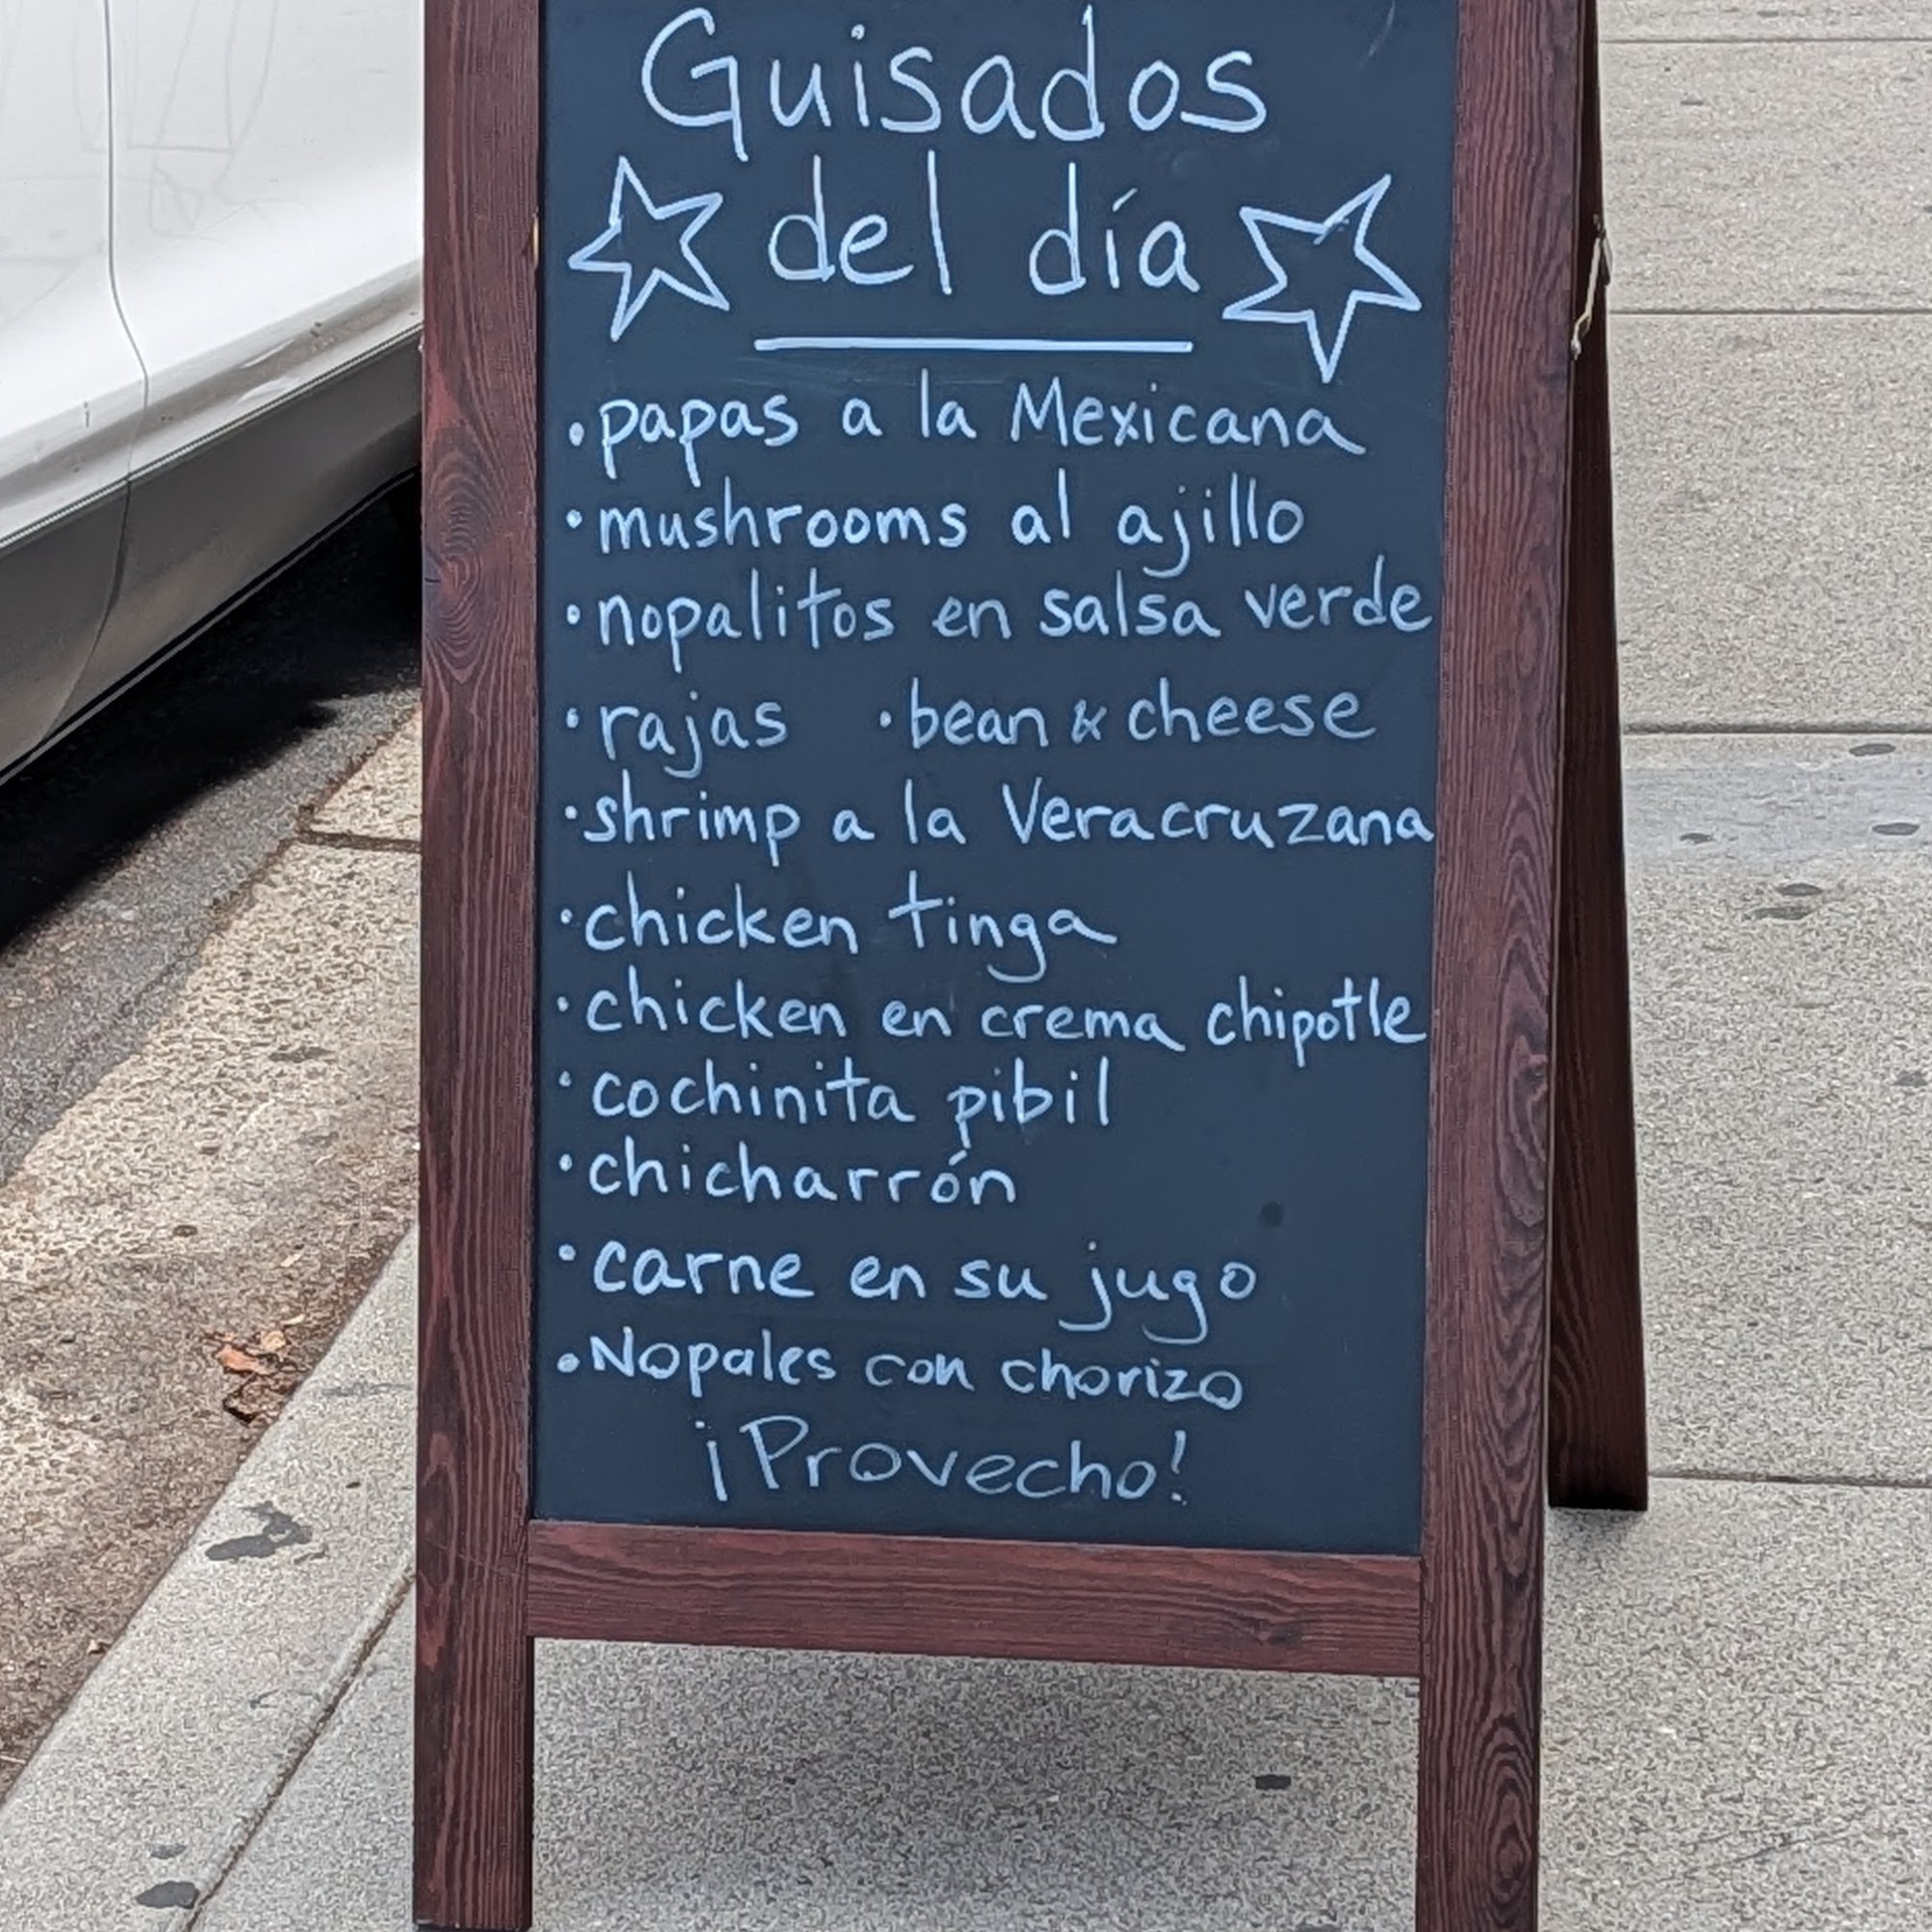 Guisados
del día
• papas a la Mexicana
• mushrooms al ajillo
• nopalitos en salsa verde
• rajas • bean & cheese
• shrimp a la Veracruzana
• chicken tinga
• chicken en crema chipotle
• cochinita pibil
• chicharrón
• carne en su jugo
• Nopales con chorizo
¡Provecho!